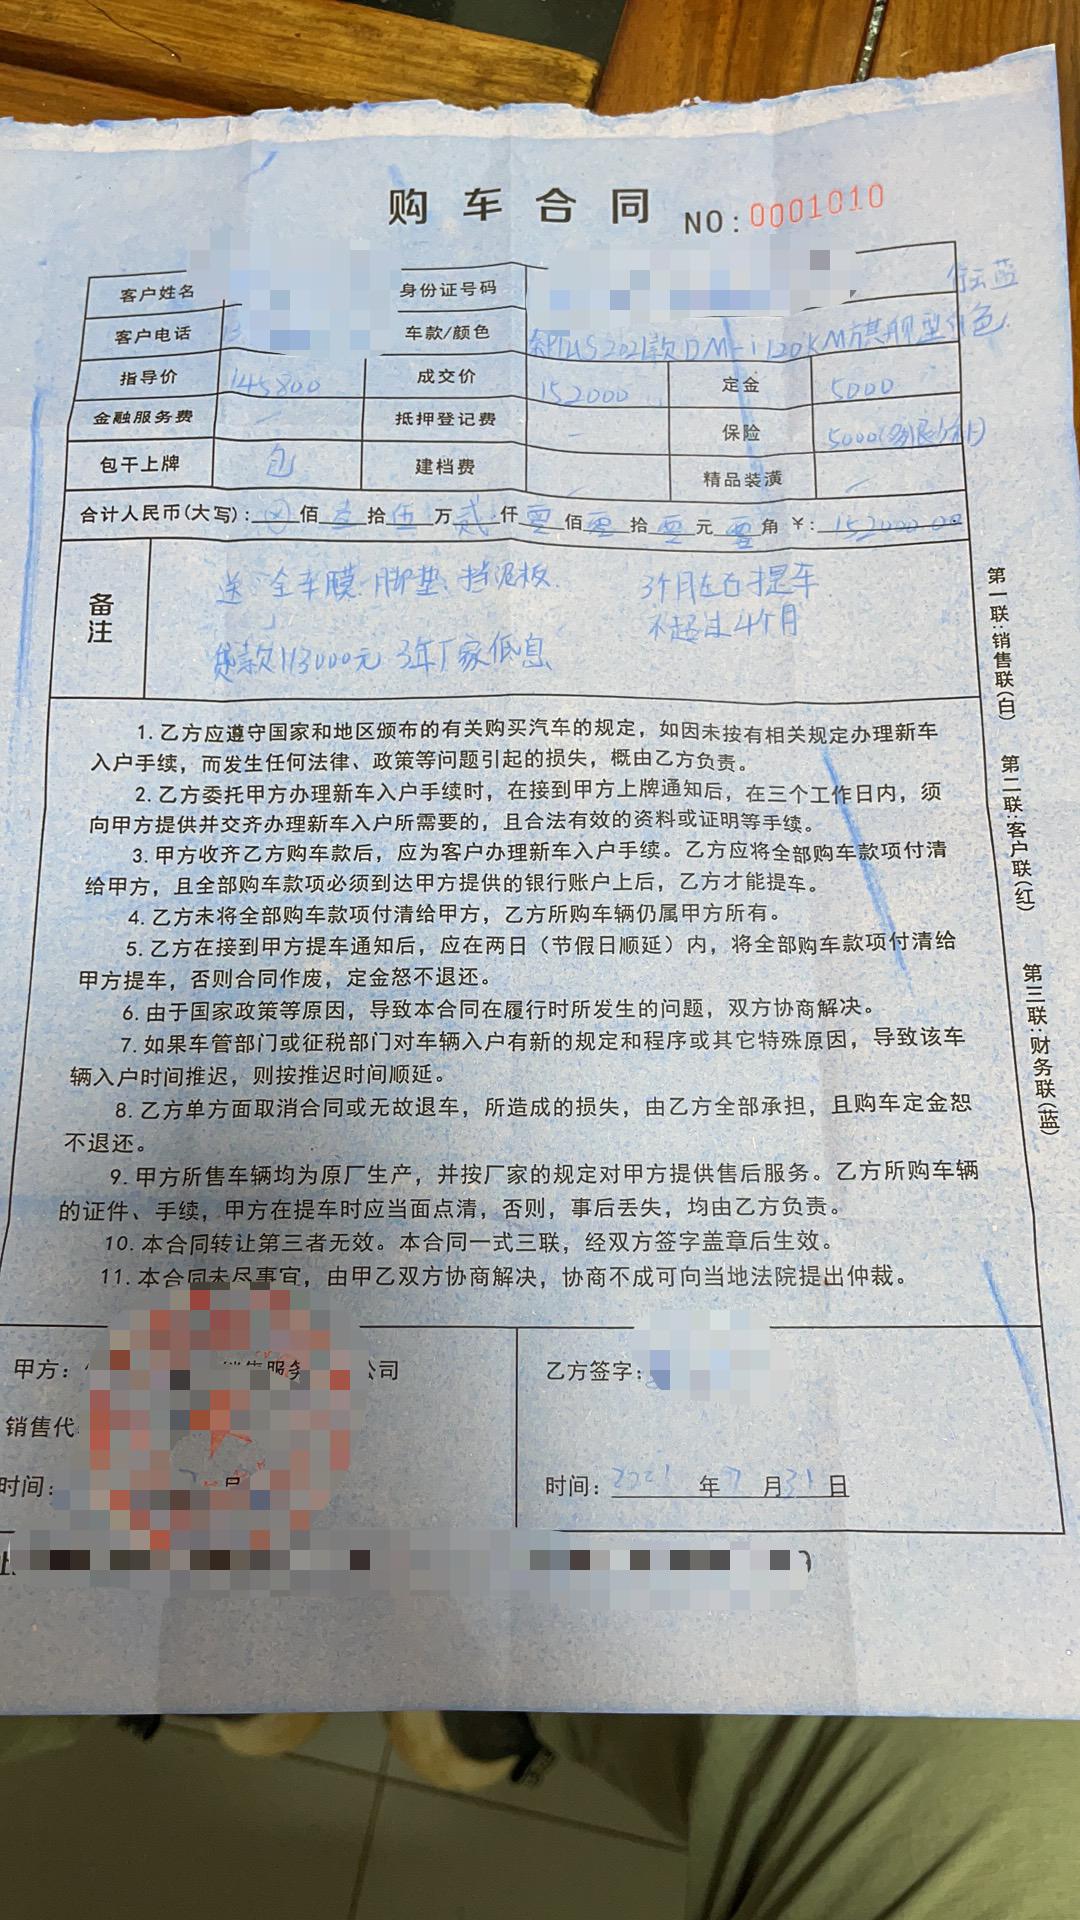 购车合同 NO:0001010
客户姓名 身份证号码
客户电话 车款/颜色 秦PLUS2021款DM-i 120KM旗舰型 色
指导价 145800 成交价 152000 定金 5000
金融服务费 — 抵押登记费 — 保险 5000(
包干上牌 包 建档费 — 精品装潢 —
合计人民币(大写): 佰壹拾伍万贰仟零佰零拾零元零角 ¥: 152000.00
备注
送 全车膜、脚垫、挡泥板 3个月左右提车
不超过4个月
贷款113000元 3年厂家低息
1.乙方应遵守国家和地区颁布的有关购买汽车的规定，如因未按有相关规定办理新车
入户手续，而发生任何法律、政策等问题引起的损失，概由乙方负责。
2.乙方委托甲方办理新车入户手续时，在接到甲方上牌通知后，在三个工作日内，须
向甲方提供并交齐办理新车入户所需要的，且合法有效的资料或证明等手续。
3.甲方收齐乙方购车款后，应为客户办理新车入户手续。乙方应将全部购车款项付清
给甲方，且全部购车款项必须到达甲方提供的银行账户上后，乙方才能提车。
4.乙方未将全部购车款项付清给甲方，乙方所购车辆仍属甲方所有。
5.乙方在接到甲方提车通知后，应在两日（节假日顺延）内，将全部购车款项付清给
甲方提车，否则合同作废，定金恕不退还。
6.由于国家政策等原因，导致本合同在履行时所发生的问题，双方协商解决。
7.如果车管部门或征税部门对车辆入户有新的规定和程序或其它特殊原因，导致该车
辆入户时间推迟，则按推迟时间顺延。
8.乙方单方面取消合同或无故退车，所造成的损失，由乙方全部承担，且购车定金恕
不退还。
9.甲方所售车辆均为原厂生产，并按厂家的规定对甲方提供售后服务。乙方所购车辆
的证件、手续，甲方在提车时应当面点清，否则，事后丢失，均由乙方负责。
10.本合同转让第三者无效。本合同一式三联，经双方签字盖章后生效。
11.本合同未尽事宜，由甲乙双方协商解决，协商不成可向当地法院提出仲裁。
甲方: 销售服务 公司 乙方签字:
销售代
时间: 日 时间: 2021 年 7 月 31 日
第一联:销售联(白)
第二联:客户联(红)
第三联:财务联(蓝)